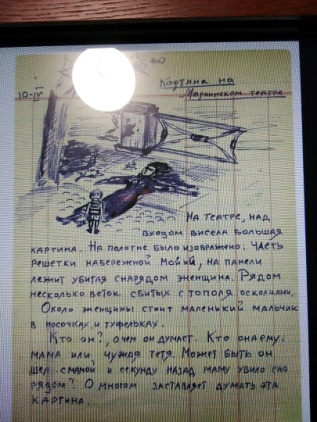 Картина на
10-IV Мариинском театре
На театре, над
входом висела большая
картина. На полотне было изображено: часть
решетки набережной Мойки, на панели
лежит убитая снарядом женщина. Рядом
несколько веток сбитых с тополя осколками.
Около женщины стоит маленький мальчик
в носочках и туфельках.
Кто он?, о чем он думает. Кто она ему:
мама или, чужая тетя. Может быть он
шел с мамой и секунду назад маму убило
рядом? О многом заставляет думать эта
картина.